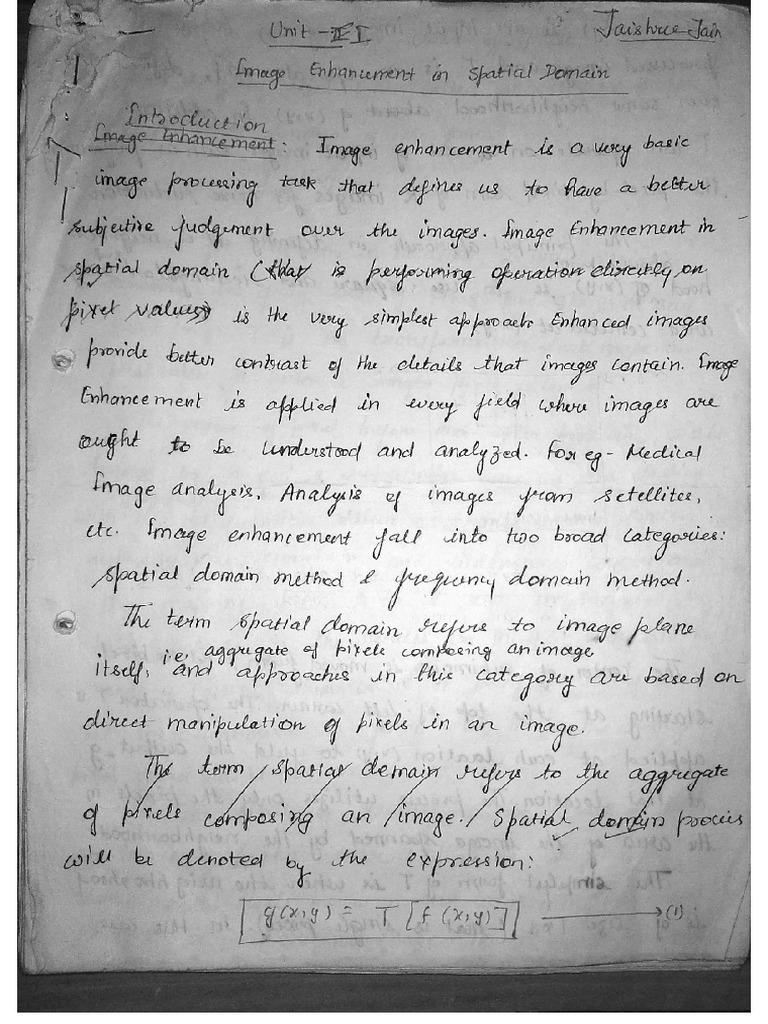 Unit - II Jaishree Jain
Image Enhancement in Spatial Domain
Introduction
Image Enhancement: Image enhancement is a very basic
image processing task that defines us to have a better
subjective judgement over the images. Image Enhancement in
spatial domain (that is performing operation directly on
pixel values) is the very simplest approach. Enhanced images
provide better contrast of the details that images contain. Image
Enhancement is applied in every field where images are
ought to be understood and analyzed. For eg- Medical
Image analysis, Analysis of images from setellites,
etc. Image enhancement fall into two broad categories:
spatial domain method & frequency domain method.
The term spatial domain refers to image plane
i.e, aggregate of pixels composing an image
itself, and approaches in this category are based on
direct manipulation of pixels in an image.
The term spatial domain refers to the aggregate
of pixels composing an image. Spatial domain process
will be denoted by the expression:
g(x,y) = T [f(x,y)] → (1)